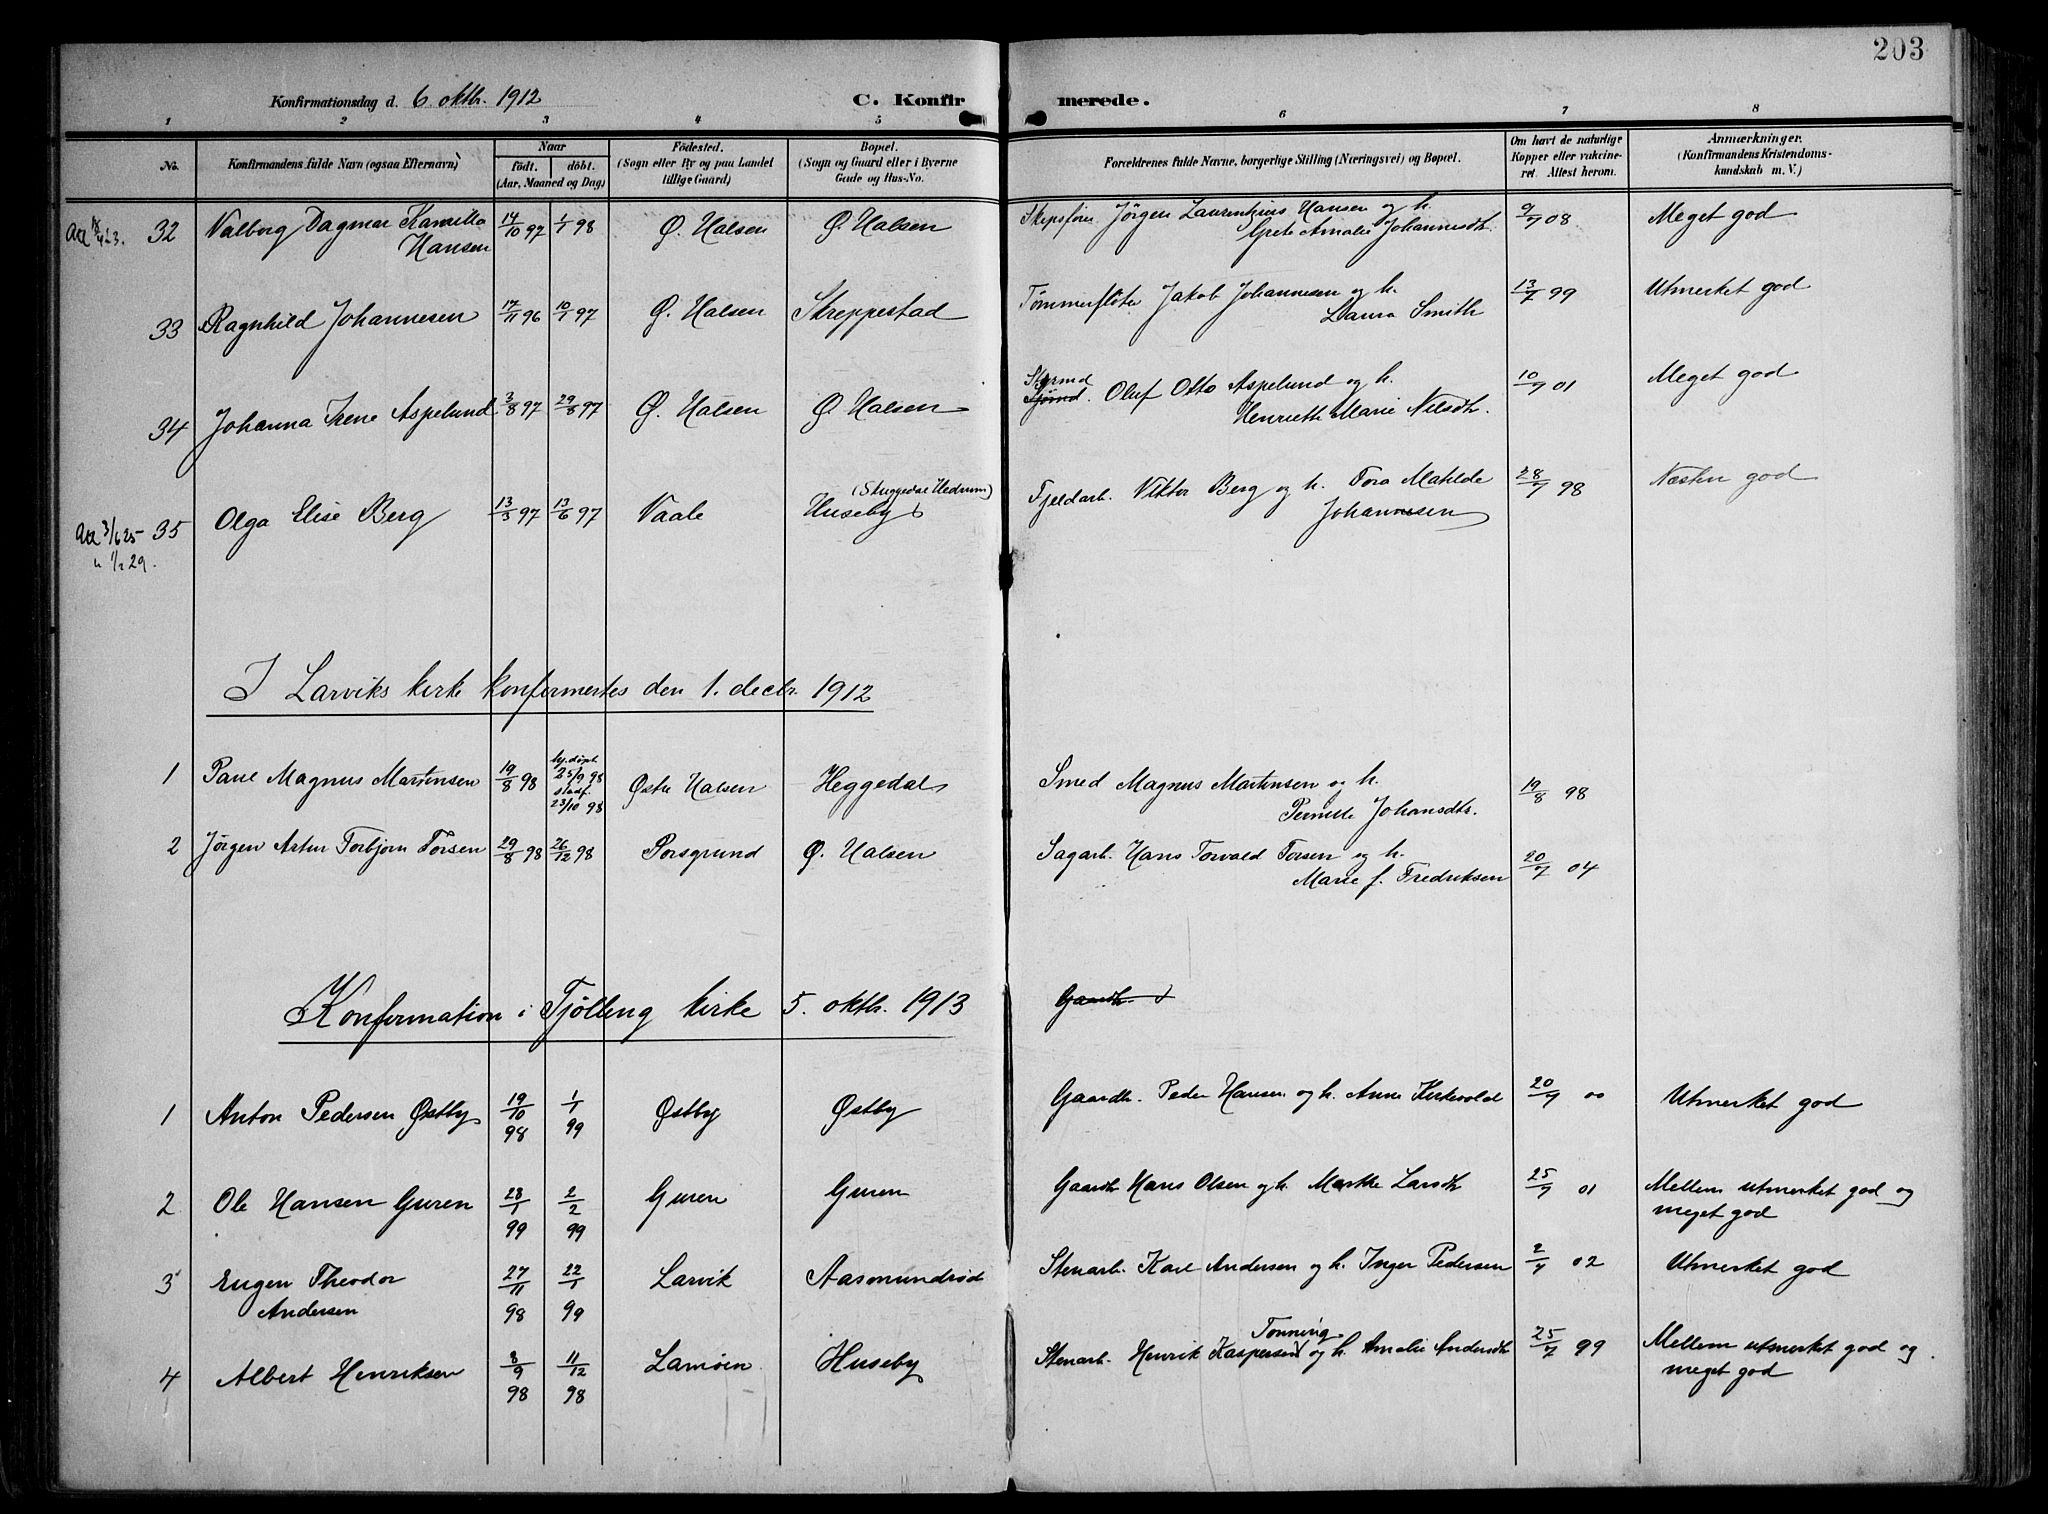 203
Konfirmationsdag d. 6 oktbr. 1912
C. Konfir merede.
1 2 3 4 5 6 7 8
No.
Konfirmandens fulde Navn (ogsaa Efternavn)
Naar
født. døbt.
(Aar, Maaned og Dag)
Fødested.
(Sogn eller By og paa Landet
tillige Gaard)
Bopæl.
(Sogn og Gaard eller i Byerne
Gade og Hus-No.
Forældrenes fulde Navne, borgerlige Stilling (Næringsvei) og Bopæl.
Om havt de naturlige
Kopper eller vakcine-
ret. Attest herom.
Anmærkninger.
(Konfirmandens Kristendoms-
kundskab m. V.)
32 Valborg Dagmar Kamilla 14/10 97 1/1 98 Ø. Halsen Ø. Halsen Skipsfører Jörgen Laurentius Hansen og h. 9/9 08 Meget god
Hansen Grete Amalie Johannesdtr.
33 Ragnhild Johannesen 17/11 96 10/1 97 Ø. Halsen Skreppestad Tømmerfløter Jakob Johannesen og h. 13/7 99 Utmerket god
Laura Smith
34 Johanna Irene Aspelund 3/8 97 29/8 97 Ø. Halsen Ø. Halsen Styrmd Sjömd. Oluf Otto Aspelund og h. 10/9 01 Meget god
Henriette Marie Nilsdtr.
(Skuggedal Hedrum)
35 Olga Elise Berg 13/3 97 13/6 97 Vaale Huseby Fjeldarb. Viktor Berg og h. Tora Matilde 28/7 98 Næsten god
Johannesen
3/6 25
1/2 29.
I Larviks kirke konfirmertes den 1. decbr. 1912
1 Paul Magnus Martinsen 19/8 98 hj. døpt 25/9 98 stadf. 23/10 98 Østre Halsen Heggedal Smed Magnus Martinsen og h. 19/8 98
Pernille Johansdtr.
2 Jørgen Artur Torbjørn Torsen 29/8 98 26/12 98 Porsgrund Ø. Halsen Sagarb. Hans Torvald Torsen og h. 20/7 04
Marie f. Fredriksen
Konfirmation i Tjølling kirke 5. oktbr. 1913
Gaardbr.
1 Anton Pedersen Østby 19/10 98 1/1 99 Østby Østby Gaardbr. Peder Hansen og h. Anne Kirkevold 20/9 00 Utmerket god
2 Ole Hansen Guren 28/1 99 2/2 99 Guren Guren Gaardbr Hans Olsen og h. Marthe Larsdtr 25/9 01 Mellem utmerket god og
meget god
3 Eugen Theodor 27/11 98 22/1 99 Larvik Aasmundrød Stenarb. Karl Andersen og h. Inger Pedersen 2/7 02 Utmerket god
Andersen
Tonning
4 Albert Henriksen 8/9 98 11/12 98 Lamøen Huseby Stenarb. Henrik Kaspersen og h. Amalie Andersdtr 25/7 99 Mellem utmerket god og
meget god